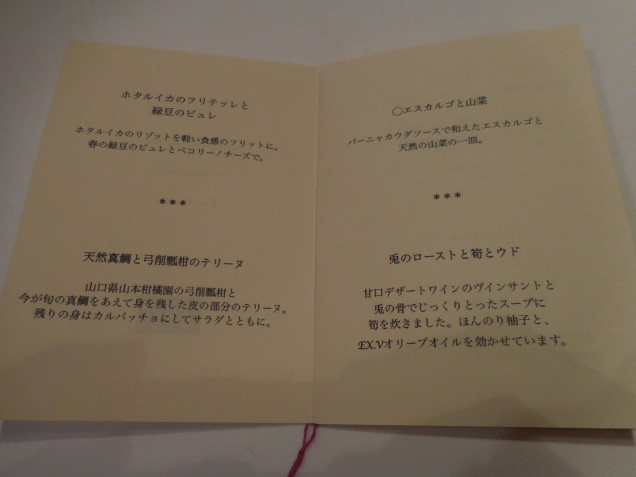 ホタルイカのフリテッレと
緑豆のピュレ
ホタルイカのリゾットを軽い食感のフリットに。
春の緑豆のピュレとペコリーノチーズで。
***
天然真鯛と弓削瓢柑のテリーヌ
山口県山本柑橘園の弓削瓢柑と
今が旬の真鯛をあえて身を残した皮の部分のテリーヌ。
残りの身はカルパッチョにしてサラダとともに。
○エスカルゴと山菜
バーニャカウダソースで和えたエスカルゴと
天然の山菜の一皿。
***
兎のローストと筍とウド
甘口デザートワインのヴィンサントと
兎の骨でじっくりとったスープに
筍を炊きました。ほんのり柚子と、
EX.Vオリーブオイルを効かせています。